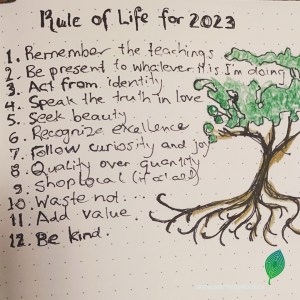 Rule of Life for 2023
1. Remember the teachings
2. Be present to whatever it is I'm doing
3. Act from identity
4. Speak the truth in love
5. Seek beauty
6. Recognize excellence
7. Follow curiosity and joy
8. Quality over quantity
9. Shop local (if at all)
10. Waste not...
11. Add value.
12. Be kind.